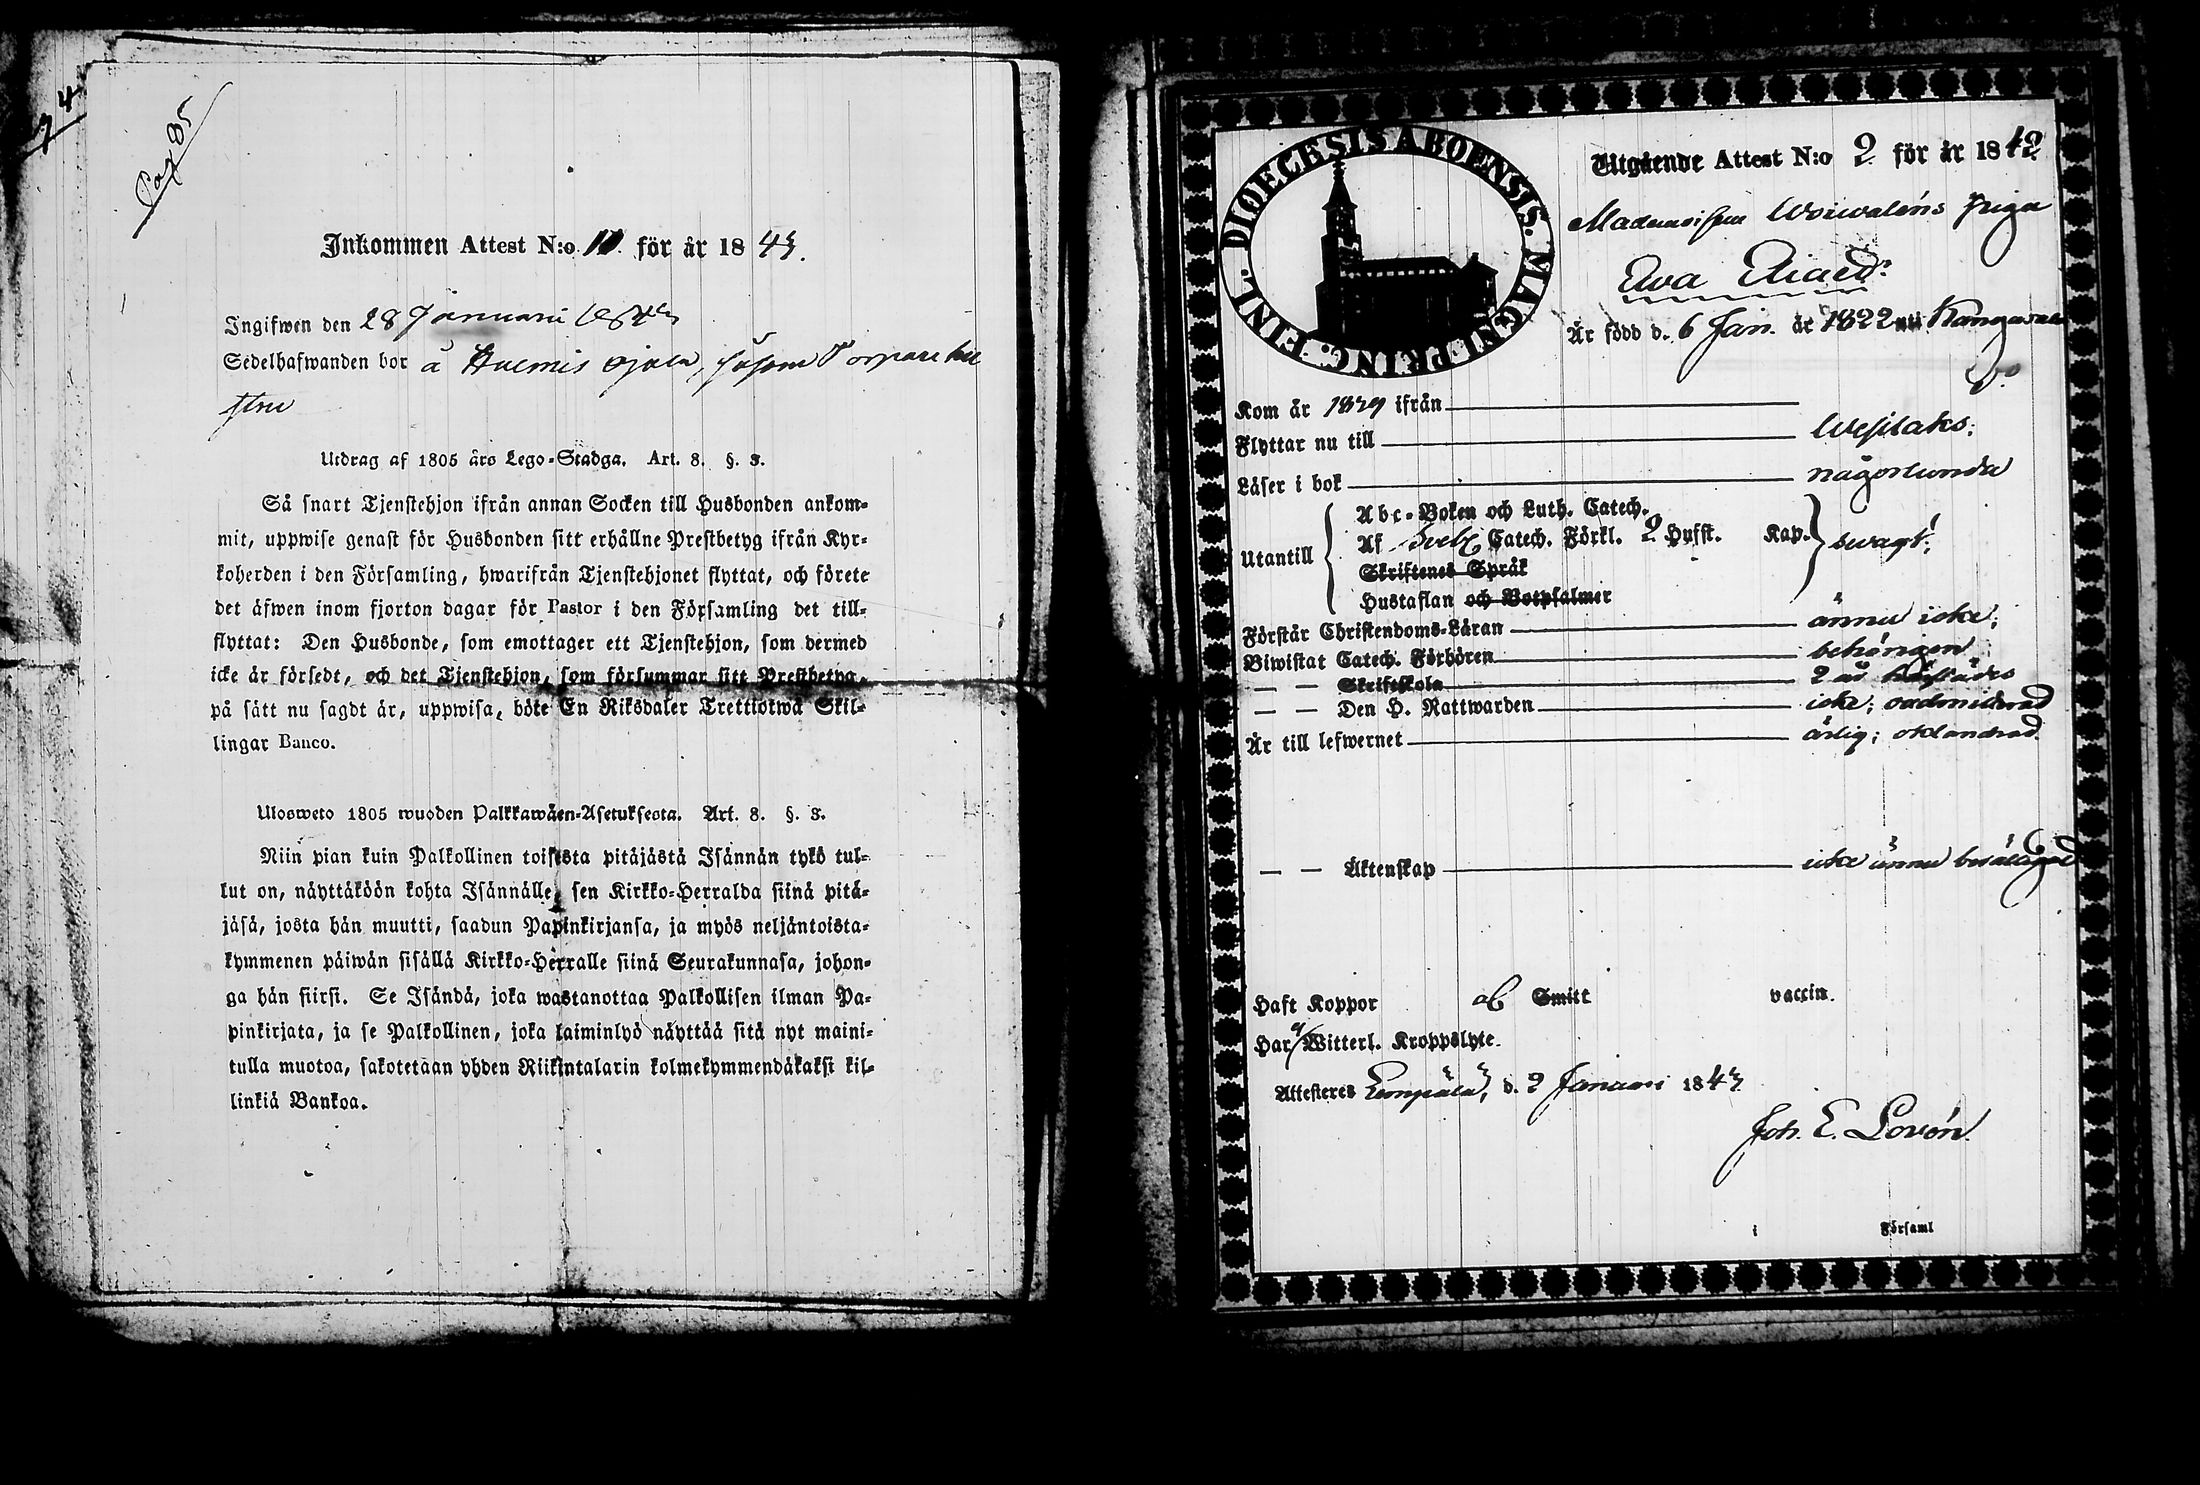 4
Pag 85
Inkommen Attest N:o 11 för år 1843.
Ingifwen den 28 Januari 1843
Sedelhafwanden bor å Ojala, såsom Torpare hu
stru
Utdrag af 1805 års Lego-Stadga. Art. 8. §. 3.
Så snart Tjenstehjon ifrån annan Socken till Husbonden ankom-
mit, uppwise genast för Husbonden sitt erhållne Prestbetyg ifrån Kyr-
koherden i den Församling, hwarifrån Tjenstehjonet flyttat, och förete
det äfwen inom fjorton dagar för Pastor i den Församling det till-
flyttat: Den Husbonde, som emottager ett Tjenstehjon, som dermed
icke är försedt, och det Tjenstehjon, som försummar sitt Prestbetyg,
på sätt nu sagdt är, uppwisa, böte En Riksdaler Trettiotwå Skil-
lingar Banco.
Ulosweto 1805 wuoden Palkkawäen-Asetuksesta. Art. 8. §. 3.
Niin pian kuin Palkollinen toisesta pitäjästä Isännän tykö tul-
lut on, näyttäköön kohta Isännälle, sen Kirkko-Herralda siinä pitä-
jäsä, josta hän muutti, saadun Papinkirjansa, ja myös neljäntoista-
kymmenen päiwän sisällä Kirkko-Herralle siinä Seurakunnasa, johon-
ga hän siirsi. Se Isändä, joka wastanottaa Palkollisen ilman Pa-
pinkirjata, ja se Palkollinen, joka laiminlyö näyttää sitä nyt maini-
tulla muotoa, sakotetaan yhden Riikintalarin kolmekymmendäkaksi kil-
linkiä Bankoa.
DIOECESIS ABOENSIS. MAGNI PRINC. FINL.
Utgående Attest N:o 2 för år 1843
Mademoiselle Woiwaléns Piga
Ewa
Är född d. 6 Jan. år 1822 uti Kangasala
Kom år 1839 ifrån
Flyttar nu till Wesilaks;
Läser i bok någorlunda
Utantill
Abc-Boken och Luth. Catech.
Af Sveb. Catech. Förkl. 2 Hufst. Kap. swagt;
Skriftenes Språk
Hustaflan och Botpsalmer
Förstår Christendoms-Läran ännu icke;
Biwistat Catech. Förhören behörigen
— — Skriftskola 2 år härstädes
— — Den H. Nattwarden icke; oadmitterad
Är till lefwernet ärlig; oklandrad.
— — Äktenskap icke ännu berättigad
Haft Koppor af Smitt vaccin.
Har ej Witterl. Kroppslyte.
Attesteres Lempälä, d. 2 Januari 1843
Joh. E. Lovén.
i Församl